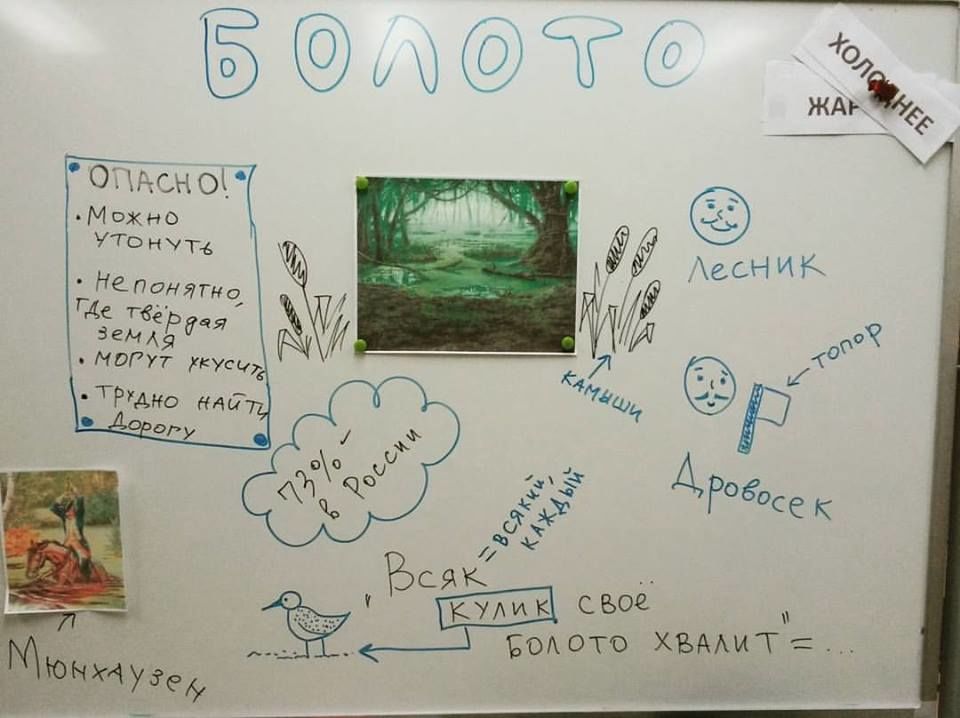 БОЛОТО
ХОЛОДНЕЕ
ЖАР
ОПАСНО!
• Можно
утонуть
• непонятно,
где твёрдая
земля
• могут укусить
• трудно найти
дорогу
Лесник
камыши
← топор
Дровосек
73% -
в России
"Всяк = всякий,
каждый
кулик своё
болото хвалит" = ...
Мюнхаузен